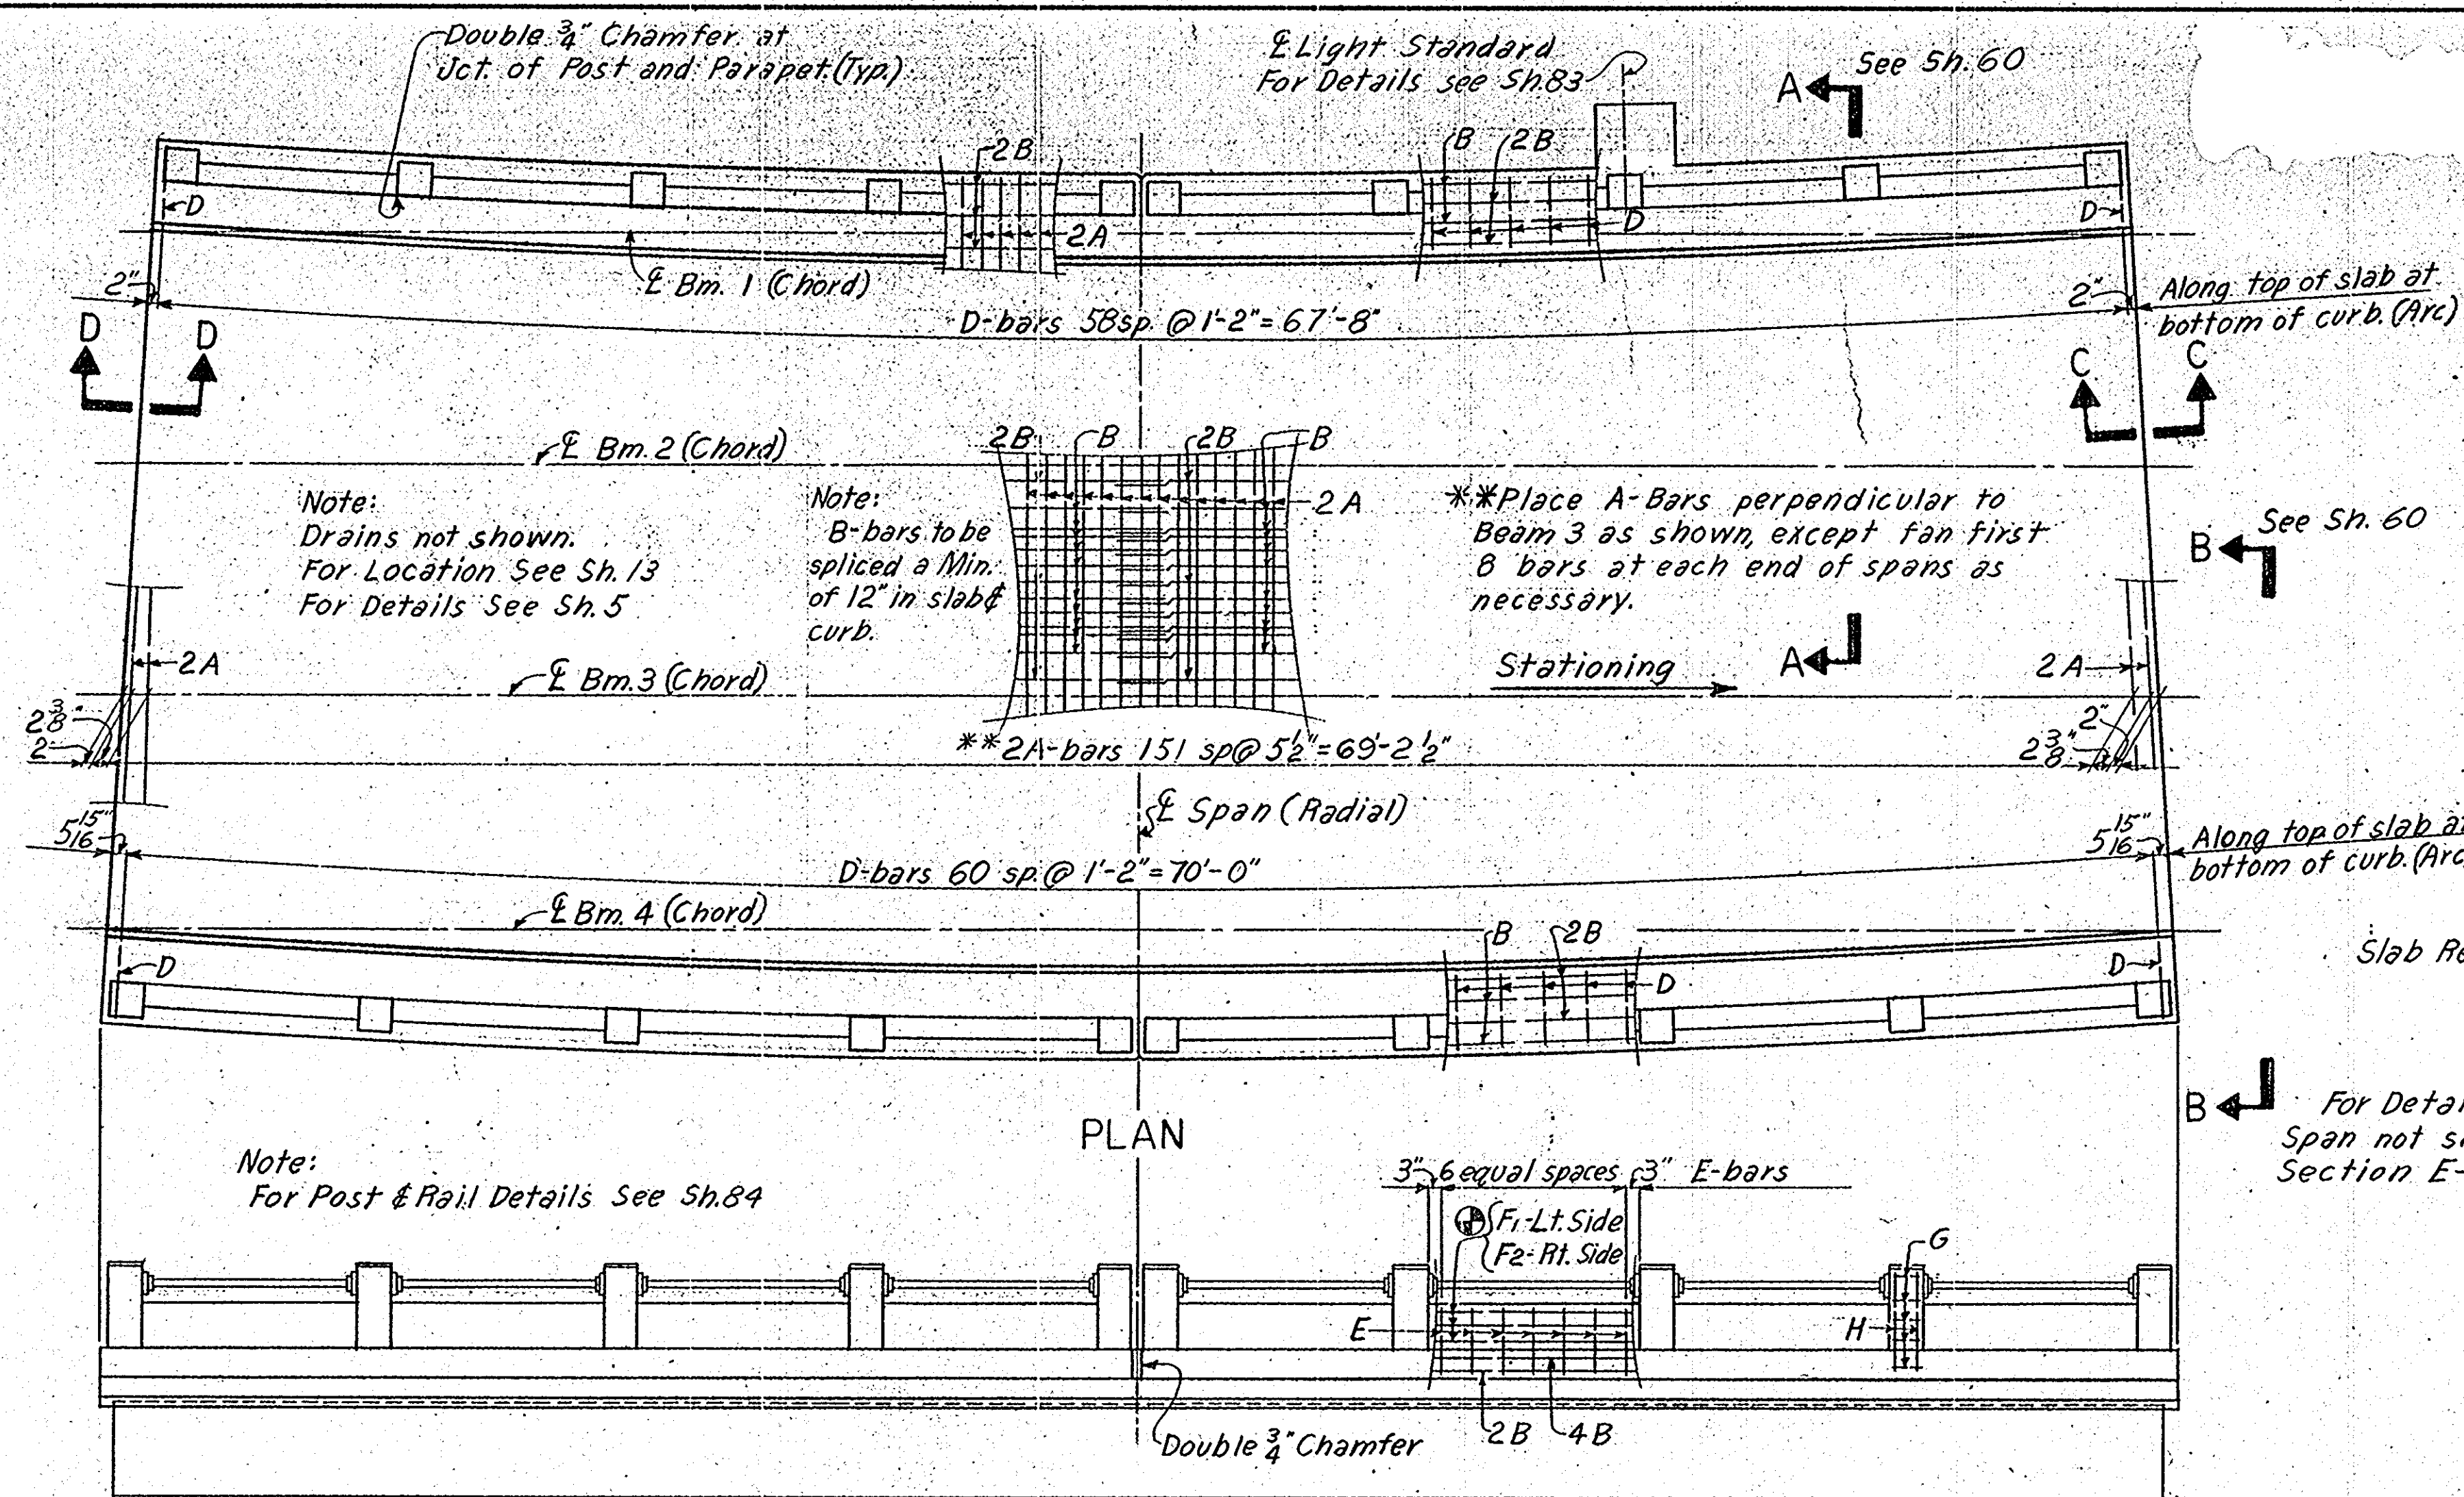 Double 3/4" Chamfer at
Jct. of Post and Parapet (Typ.)
℄ Light Standard
For Details see Sh.83
A
See Sh. 60
2B
B
2B
D
2A
D
D
℄ Bm. 1 (Chord)
2"
D-bars 58 sp. @ 1'-2" = 67'-8"
2"
Along top of slab at
bottom of curb. (Arc)
D D
C C
℄ Bm. 2 (Chord)
2B
B
2B
B
2A
Note:
Drains not shown.
For Location See Sh. 13
For Details See Sh. 5
Note:
B-bars to be
spliced a Min.
of 12" in slab &
curb.
**Place A-Bars perpendicular to
Beam 3 as shown, except fan first
8 bars at each end of spans as
necessary.
B
See Sh. 60
2A
℄ Bm. 3 (Chord)
Stationing
A
2A
2 3/8"
2
**2A-bars 151 sp @ 5 1/2" = 69'-2 1/2"
2"
2 3/8"
℄ Span (Radial)
5 15/16"
D-bars 60 sp. @ 1'-2" = 70'-0"
5 15/16"
Along top of slab
bottom of curb. (Arc
℄ Bm. 4 (Chord)
B
2B
D
D
D
Slab
PLAN
B
For
Span not
Section E-
Note:
For Post & Rail Details See Sh.84
3" 6 equal spaces 3" E-bars
F1-Lt. Side
F2-Rt. Side
G
E
H
2B
4B
Double 3/4" Chamfer